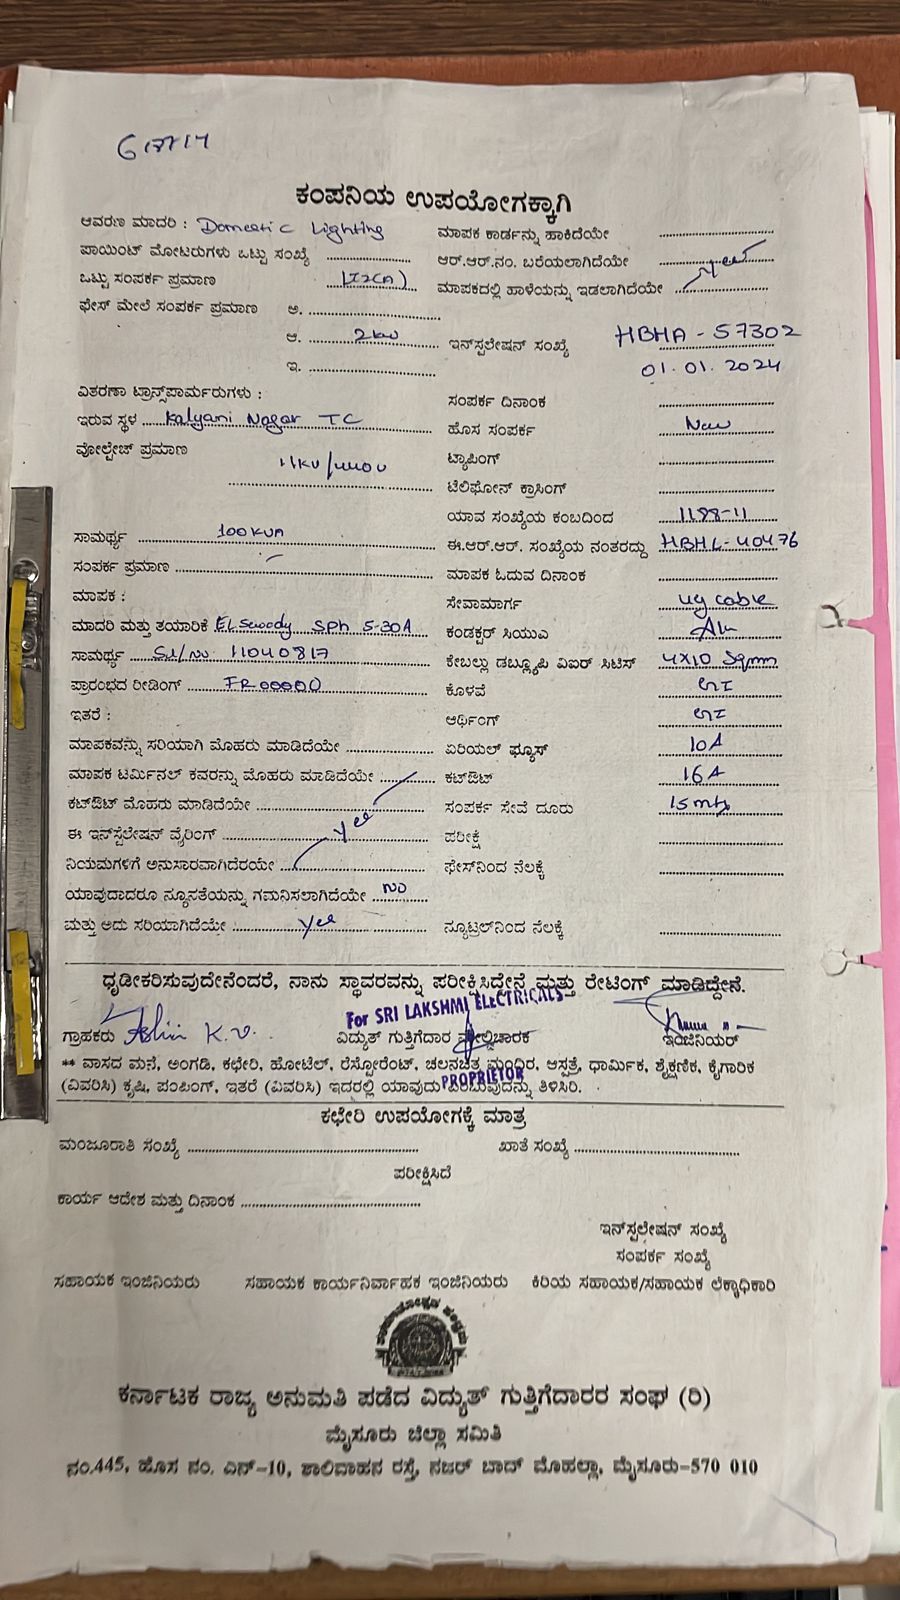 G17714
ಕಂಪನಿಯ ಉಪಯೋಗಕ್ಕಾಗಿ
ಆವರಣ ಮಾದರಿ : Domestic Lighting
ಮಾಪಕ ಕಾರ್ಡನ್ನು ಹಾಕಿದೆಯೇ
ಪಾಯಿಂಟ್ ಮೋಟರುಗಳು ಒಟ್ಟು ಸಂಖ್ಯೆ
ಆರ್.ಆರ್.ನಂ. ಬರೆಯಲಾಗಿದೆಯೇ
ಒಟ್ಟು ಸಂಪರ್ಕ ಪ್ರಮಾಣ
ಮಾಪಕದಲ್ಲಿ ಹಾಳೆಯನ್ನು ಇಡಲಾಗಿದೆಯೇ Yes
ಫೇಸ್ ಮೇಲೆ ಸಂಪರ್ಕ ಪ್ರಮಾಣ ಅ.
ಆ. 2kw ಇನ್‌ಸ್ಟಲೇಷನ್ ಸಂಖ್ಯೆ HBHA - 57302
ಇ. 01.01.2024
ವಿತರಣಾ ಟ್ರಾನ್ಸ್‌ಪಾರ್ಮರುಗಳು :
ಸಂಪರ್ಕ ದಿನಾಂಕ
ಇರುವ ಸ್ಥಳ Kalyani Nagar TC
ಹೊಸ ಸಂಪರ್ಕ New
ವೋಲ್ಟೇಜ್ ಪ್ರಮಾಣ 11KV/440V
ಟ್ಯಾಪಿಂಗ್
ಟೆಲಿಫೋನ್ ಕ್ರಾಸಿಂಗ್
ಯಾವ ಸಂಖ್ಯೆಯ ಕಂಬದಿಂದ 1188-11
ಸಾಮರ್ಥ್ಯ 100KVA
ಈ.ಆರ್.ಆರ್. ಸಂಖ್ಯೆಯ ನಂತರದ್ದು HBHL-40476
ಸಂಪರ್ಕ ಪ್ರಮಾಣ
ಮಾಪಕ ಓದುವ ದಿನಾಂಕ
ಮಾಪಕ :
ಸೇವಾಮಾರ್ಗ ug cable
ಮಾದರಿ ಮತ್ತು ತಯಾರಿಕೆ ELSewedy SPh 5-30A
ಕಂಡಕ್ಟರ್ ಸಿಯುಎ Alu
ಸಾಮರ್ಥ್ಯ Sl/No 11040817
ಕೇಬಲ್ಲು ಡಬ್ಲ್ಯೂಪಿ ವಿಐರ್ ಸಿಟಿಸ್ 4X10 Sqmm
ಪ್ರಾರಂಭದ ರೀಡಿಂಗ್ FR00000
ಕೊಳವೆ GI
ಇತರೆ :
ಆರ್ಥಿಂಗ್ GI
ಮಾಪಕವನ್ನು ಸರಿಯಾಗಿ ಮೊಹರು ಮಾಡಿದೆಯೇ
ಏರಿಯಲ್ ಫ್ಯೂಸ್ 10A
ಮಾಪಕ ಟರ್ಮಿನಲ್ ಕವರನ್ನು ಮೊಹರು ಮಾಡಿದೆಯೇ
ಕಟ್‌ಔಟ್ 16A
ಕಟ್‌ಔಟ್ ಮೊಹರು ಮಾಡಿದೆಯೇ
ಸಂಪರ್ಕ ಸೇವೆ ದೂರು 15mts
ಈ ಇನ್‌ಸ್ಟೆಲೇಷನ್ ವೈರಿಂಗ್ Yes
ಪರೀಕ್ಷೆ
ನಿಯಮಗಳಿಗೆ ಅನುಸಾರವಾಗಿದೆರಯೇ
ಫೇಸ್‌ನಿಂದ ನೆಲಕ್ಕೆ
ಯಾವುದಾದರೂ ನ್ಯೂನತೆಯನ್ನು ಗಮನಿಸಲಾಗಿದೆಯೇ NO
ಮತ್ತು ಅದು ಸರಿಯಾಗಿದೆಯೇ Yes
ನ್ಯೂಟ್ರಲ್‌ನಿಂದ ನೆಲಕ್ಕೆ
ಧೃಡೀಕರಿಸುವುದೇನೆಂದರೆ, ನಾನು ಸ್ಥಾವರವನ್ನು ಪರೀಕ್ಷಿಸಿದ್ದೇನೆ ಮತ್ತು ರೇಟಿಂಗ್ ಮಾಡಿದ್ದೇನೆ.
For SRI LAKSHMI ELECTRICALS
ಗ್ರಾಹಕರು K.V. ವಿದ್ಯುತ್ ಗುತ್ತಿಗೆದಾರ ಮೇಲ್ವಿಚಾರಕ ಇಂಜಿನಿಯರ್
** ವಾಸದ ಮನೆ, ಅಂಗಡಿ, ಕಛೇರಿ, ಹೋಟೆಲ್, ರೆಸ್ಟೋರೆಂಟ್, ಚಲನಚಿತ್ರ ಮಂದಿರ, ಆಸ್ಪತ್ರೆ, ಧಾರ್ಮಿಕ, ಶೈಕ್ಷಣಿಕ, ಕೈಗಾರಿಕ
(ವಿವರಿಸಿ) ಕೃಷಿ, ಪಂಪಿಂಗ್, ಇತರೆ (ವಿವರಿಸಿ) ಇದರಲ್ಲಿ ಯಾವುದು ಎಂಬುವುದನ್ನು ತಿಳಿಸಿರಿ.
PROPRIETOR
ಕಛೇರಿ ಉಪಯೋಗಕ್ಕೆ ಮಾತ್ರ
ಮಂಜೂರಾತಿ ಸಂಖ್ಯೆ ಖಾತೆ ಸಂಖ್ಯೆ
ಪರೀಕ್ಷಿಸಿದೆ
ಕಾರ್ಯ ಆದೇಶ ಮತ್ತು ದಿನಾಂಕ
ಇನ್‌ಸ್ಟಲೇಷನ್ ಸಂಖ್ಯೆ
ಸಂಪರ್ಕ ಸಂಖ್ಯೆ
ಸಹಾಯಕ ಇಂಜಿನಿಯರು ಸಹಾಯಕ ಕಾರ್ಯನಿರ್ವಾಹಕ ಇಂಜಿನಿಯರು ಕಿರಿಯ ಸಹಾಯಕ/ಸಹಾಯಕ ಲೆಕ್ಕಾಧಿಕಾರಿ
ಕರ್ನಾಟಕ ರಾಜ್ಯ ಅನುಮತಿ ಪಡೆದ ವಿದ್ಯುತ್ ಗುತ್ತಿಗೆದಾರರ ಸಂಘ (ರಿ)
ಮೈಸೂರು ಜಿಲ್ಲಾ ಸಮಿತಿ
ನಂ.445, ಹೊಸ ನಂ. ಎನ್-10, ಶಾಲಿವಾಹನ ರಸ್ತೆ, ನಜರ್ ಬಾದ್ ಮೊಹಲ್ಲಾ, ಮೈಸೂರು-570 010